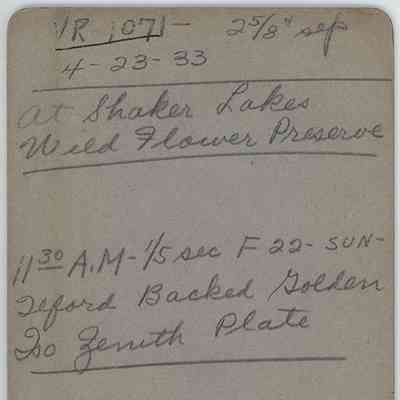 VR 1071 - 2 5/8" sep
4-23-33
at Shaker Lakes
Wild Flower Preserve
11 30 A.M - 1/5 sec F 22 - SUN-
Teford Backed Golden
Iso Zenith Plate